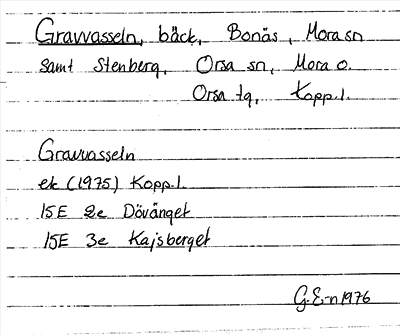 Gravvasseln, bäck, Bonäs, Mora sn
samt Stenberg, Orsa sn, Mora o.
Orsa tg, Kopp. l.
Gravvasseln
ek (1975) Kopp. l.
15E 2e Dövänget
15E 3e Kajsberget
G. E-n 1976